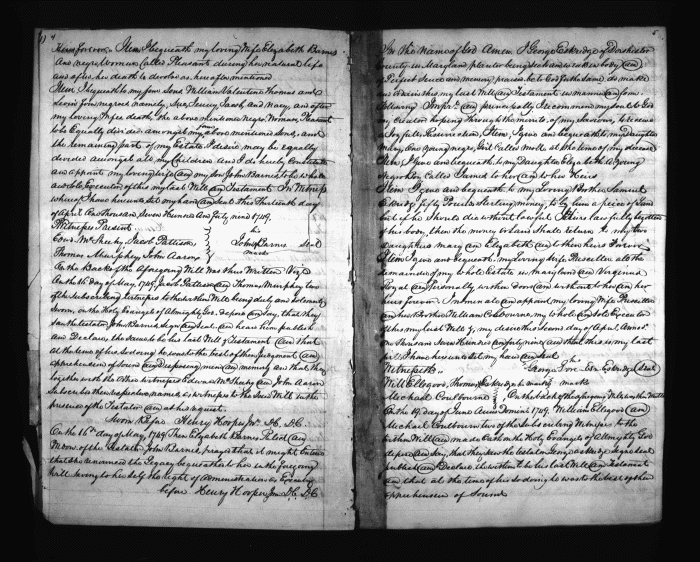 Heirs forever. Item I bequeath my loving Wife Elizabeth Barns
one negro Woman Called Pleasant during her natural life
and after her death to devolve as hereafter mentioned
Item I bequeath to my four Sons William Valentine Thomas and
Levin four negroes namely, Jenny Jacob and Mary, and after
my loving Wifes death the above mentioned negro Woman Pleasant
to be Equally divided amongst my above mentioned Sons, and
the remaining part of my Estate I desire may be equally
devided amongst all my Children and I do hereby Constitute
and appoint my loving Wife and my Son John Barns to be whole
and sole Executors of this my last Will and Testament In Witness
whereof I have hereunto set my hand and Seal this Thirteenth day
of April One Thousand Seven Hundred and forty nine 1749.
Witnesses Present
his
Edwd. McShehy Jacob Pattison John Barns Seal
Thomas Murphey John Aaron mark
On the Back of the aforegoing Will was thus Written Vizt
On the 16th day of May, 1749 Jacob Pattison and Thomas Murphey two
of the Subscribing Witnesses to the within Will being duly and solemnly
Sworn, on the Holy Evangels of Almighty God, depose and say, that they
saw the testator John Barns Sign and Seal and heard him publish
and Declare the same to be his last Will & Testament and that
at the time of his so doing he was to the best of their Judgment
apprehension of Sound and Disposing mind and memory and that they
together with the other Witnesses Edward McShehy and John Aaron
Subscribed their respective names as witnesses to the said Will in the
presence of the Testator and at his request.
Sworn before Henry Hooper Jnr. D. C.
On the 16th day of May, 1749 Then Elizabeth Barns Relict and
Widow of the Testator John Barns, prays that it might Entered
that she renounced the Legacy bequeathed to her in the foregoing
Will
before Henry Hooper Jnr. D. C.
5
In the Name of God Amen. I George Eskridge of Dorchester
County in Maryland planter being weak and sick in body and
of Perfect Sence and memory praised be to God for the same do make
and ordain this my last Will and Testament in manner and form
following Imprs. and principally I recommend my Soul to God
my Creator hoping through the merits of my Saviour, to receive
a Joyfull Resurrection, Item, I give and bequeath to my Daughter
Mary One young negro, Girl Called Moll at the time of my decease
Item, I give and bequeath to my Daughter Elizabeth a Young
negro boy Called to her and to her Heirs
Item I give and bequeath to my Loving Brother Samuel
Eskridge fifty Pounds Sterling money, to by him a piece of Land
but if he should die without lawful Heirs lawfully begotten
of his body, then the money or Land shall return to my two
daughters Mary and Elizabeth and to their heirs Forever
Item I give and bequeath, my loving Wife Priscilla all the
remainder of my whole Estate in Maryland and Virginia
Royal and personal, within door and without to her and her
heirs forever. Im and appoint my loving Wife Priscilla
and her Brother William Coulbourne, my whole and sole Executors
of this my last Will & my desire this second day of April Anno
one Thousand Seven Hundred and forty nine and that this is my last
will I have hereunto set my hand and Seal
his
Witnesseth.. George Eskridge Seal
Will Ellegood, Thomas Eskridge mark
Michael Coulbourne On the back of the aforegoing Will was thus Written
On the 19 day of June Anno Domini 1749. William Ellegood and
Michael Coulbourne two of the Subscribing Witnesses to the
within Will made Oath on the Holy Evangels of Almighty God
depose and Say, that they Saw the testator George Eskridge Sign Seal
publish and Declare the within to be his last Will and Testament
and that at the time of his so doing he was to the best of their
apprehension of Sound